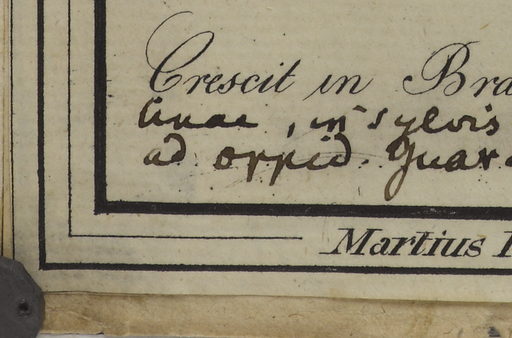 Crescit in Bra
liuae, in sylvis
ad oppid. Guar
Martius I